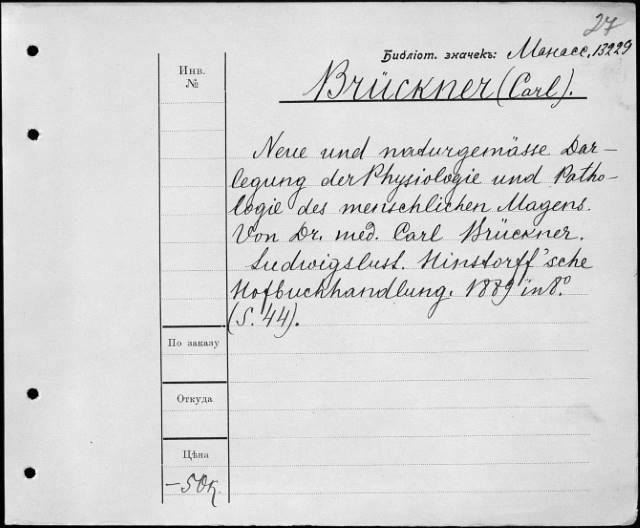 27
Библiот. значекъ: Манасс. 13229
Инв.
№
Brückner (Carl).
Neue und naturgemässe Dar-
legung der Physiologie und Patho-
logie des menschlichen Magens.
Von Dr. med. Carl Brückner.
Ludwigslust. Hinstorff'sche
Hofbuchhandlung. 1889 in 8.°
(S. 44).
По заказу
Откуда
Цѣна
—50к.